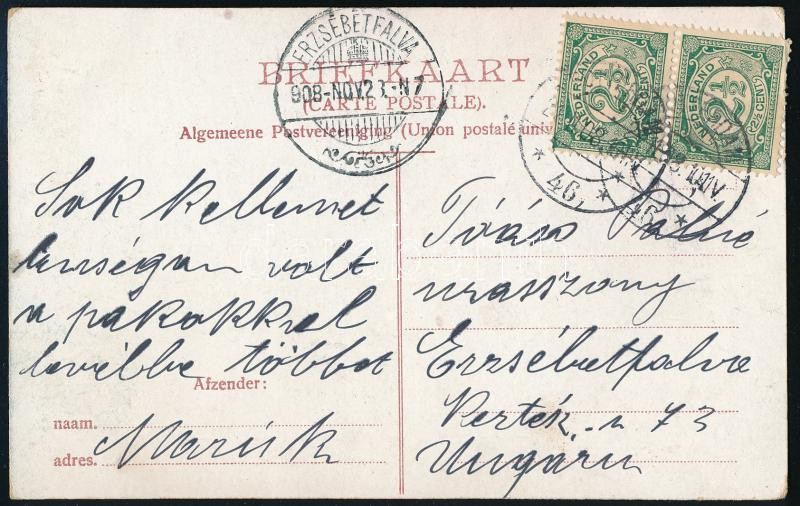 ERZSÉBETFALVA
908-NOV.23.-N7
BRIEFKAART
(CARTE POSTALE).
Algemeene Postvereeniging (Union postale univ
NEDERLAND
2½
NEDERLAND
2½
46
46
Sok kellemet
lenségem volt
a pakokkal
levélbe többet
Afzender:
naam.
adres.
Mariska
urasszony
Erzsébetfalva
Kertek u 73
Ungarn